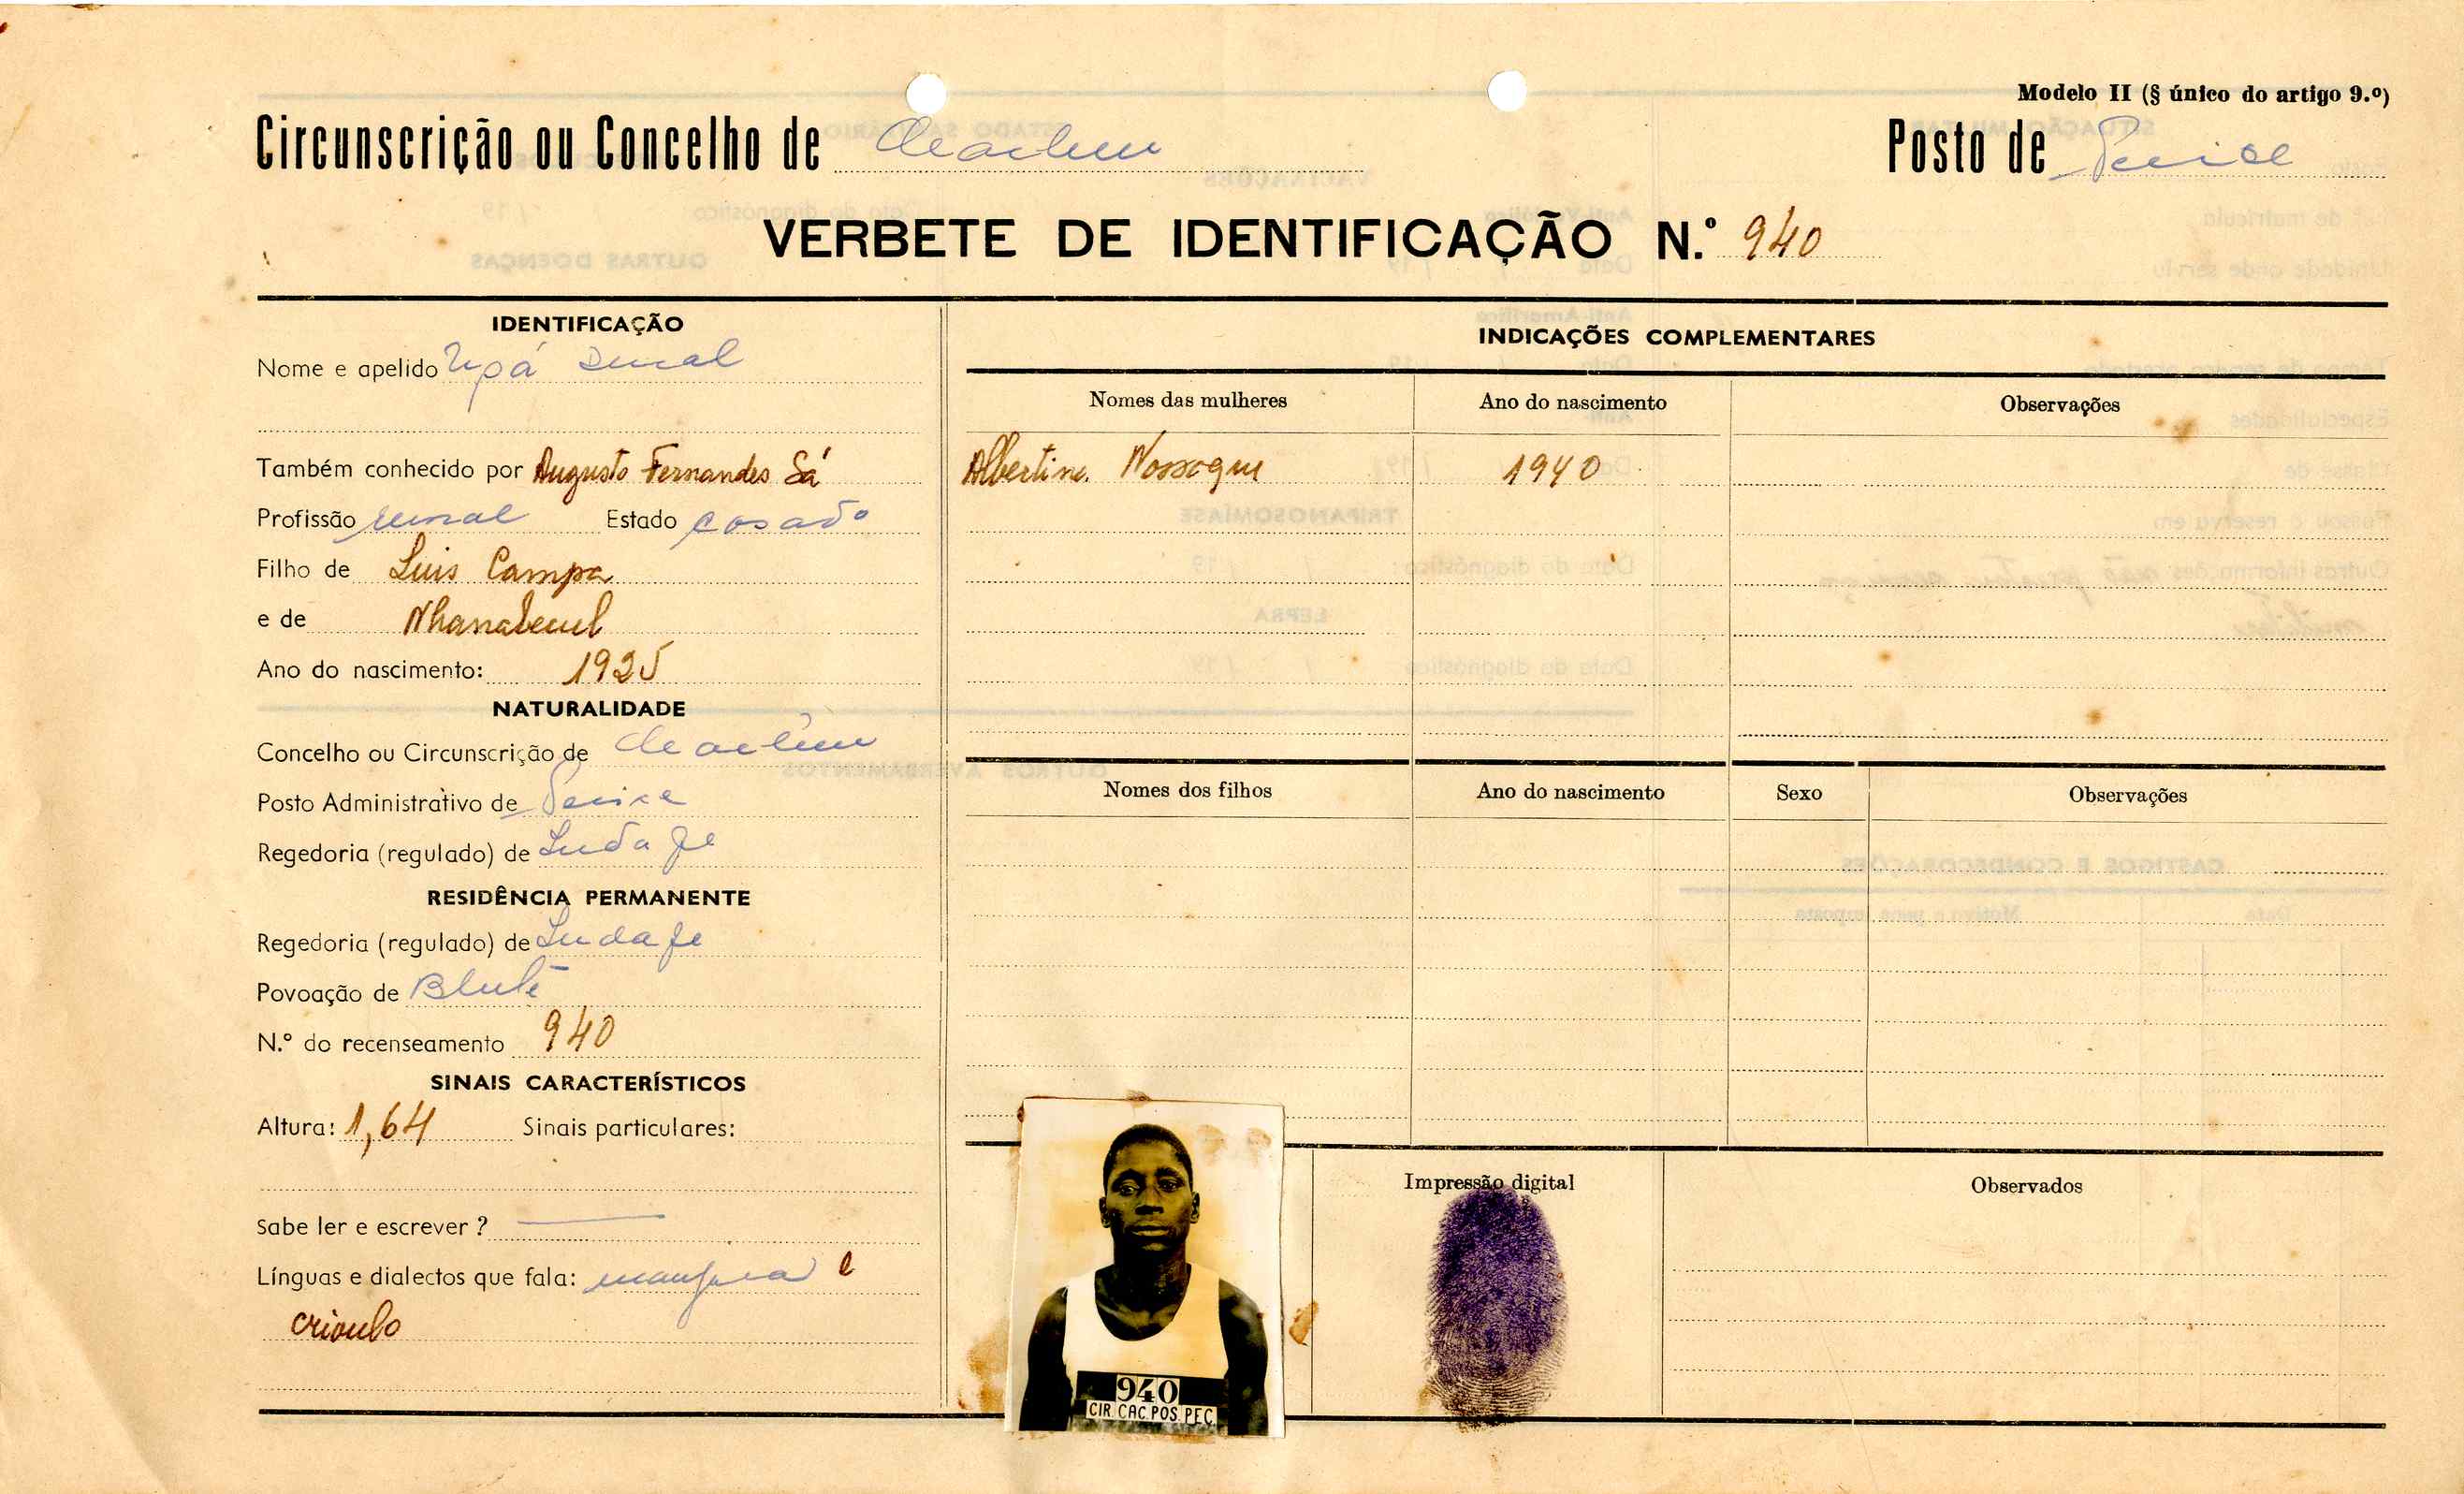 Modelo II (§ único do artigo 9.º)
Circunscrição ou Concelho de Cacheu Posto de Pecixe
VERBETE DE IDENTIFICAÇÃO N.º 940
IDENTIFICAÇÃO
Nome e apelido
Também conhecido por Augusto Fernandes Sá
Profissão Estado casado
Filho de Luis Campa
e de
Ano do nascimento: 1925
NATURALIDADE
Concelho ou Circunscrição de Cacheu
Posto Administrativo de Pecixe
Regedoria (regulado) de
RESIDÊNCIA PERMANENTE
Regedoria (regulado) de
Povoação de
N.º do recenseamento 940
SINAIS CARACTERÍSTICOS
Altura: 1,64 Sinais particulares:
Sabe ler e escrever ?
Línguas e dialectos que fala: e
crioulo
INDICAÇÕES COMPLEMENTARES
Nomes das mulheres Ano do nascimento Observações
Albertina 1940
Nomes dos filhos Ano do nascimento Sexo Observações
940
CIR. CAC. POS. PEC.
Impressão digital
Observados